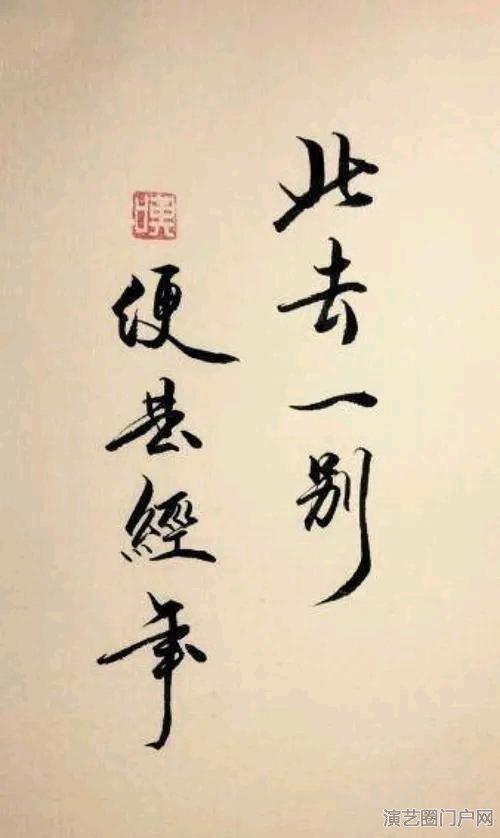 此去一别
便是經年
演艺圈门户网